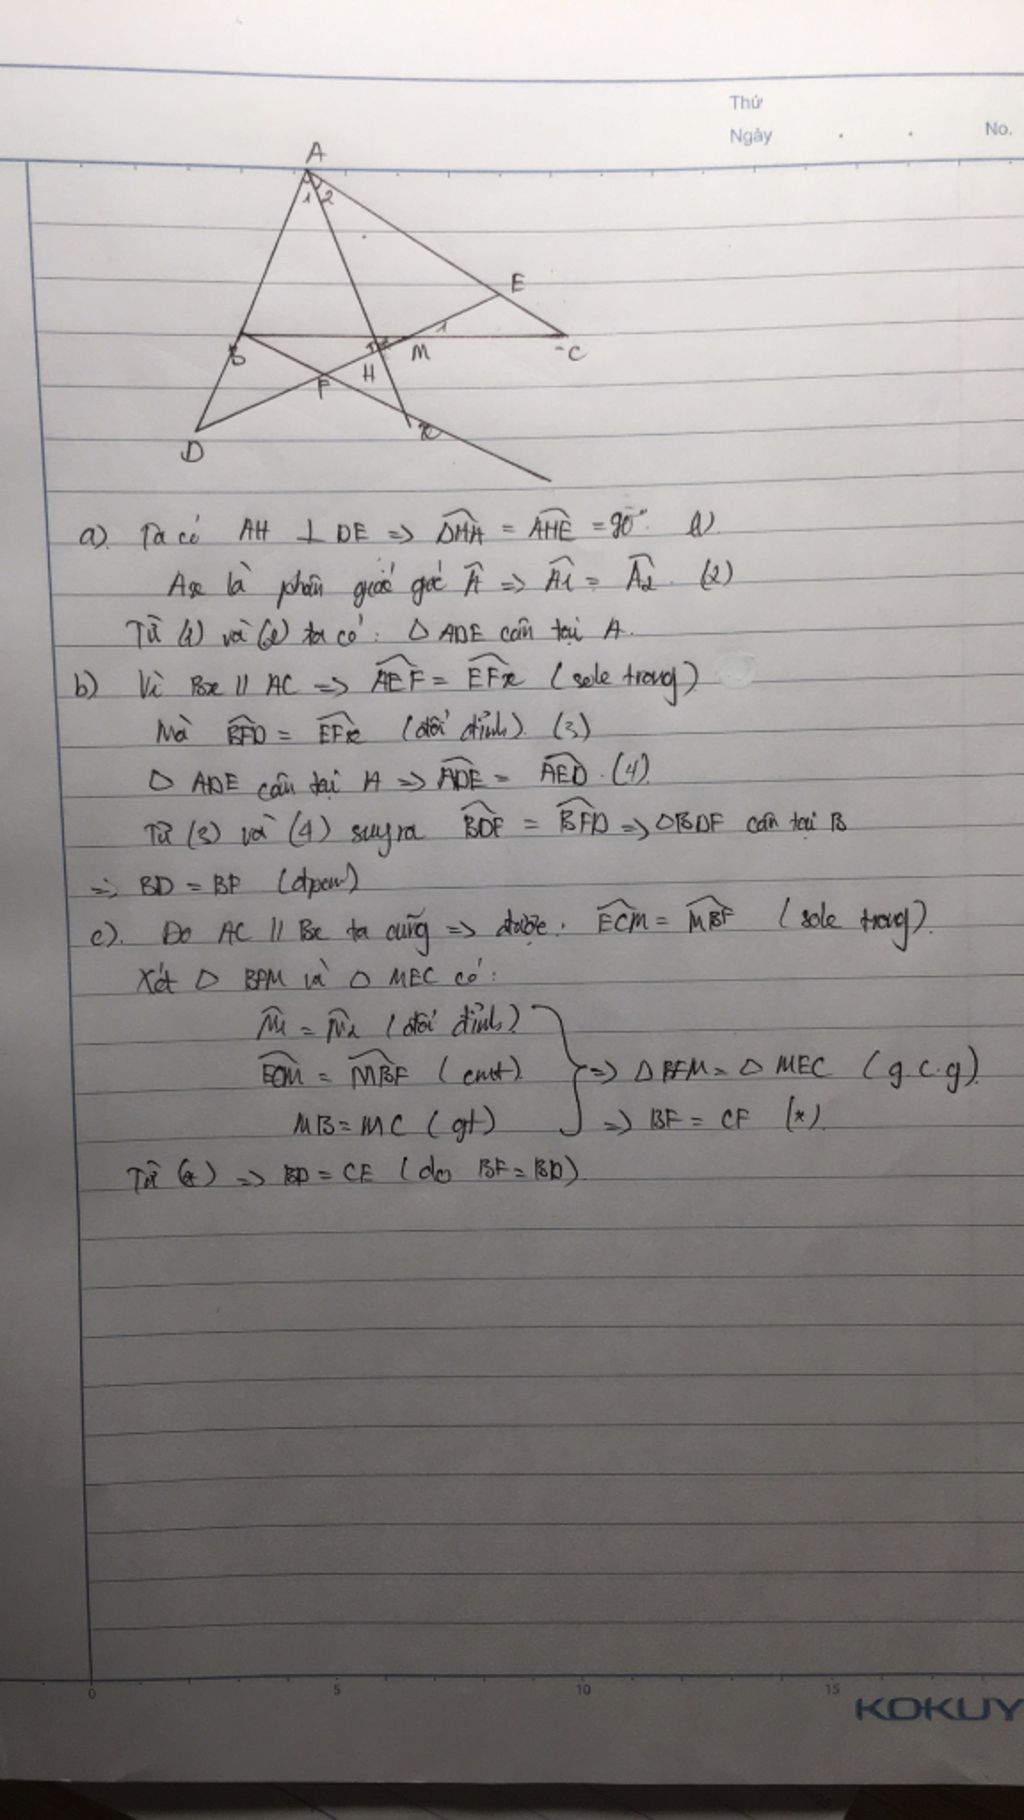 Thứ
Ngày
No.
A
1 2
E
1
B
H
M
C
F
x
D
a). Ta có AH ⊥ DE => \widehat{DHA} = \widehat{AHE} = 90°. (1)
Ax là phân giác góc \widehat{A} => \widehat{A1} = \widehat{A2}. (2)
Từ (1) và (2) ta có: Δ ADE cân tại A.
b) Vì Bx // AC => \widehat{AEF} = \widehat{EFx} (sole trong)
Mà \widehat{BFD} = \widehat{EFx} (đối đỉnh). (3)
Δ ADE cân tại A => \widehat{ADE} = \widehat{AED}. (4).
Từ (3) và (4) suy ra \widehat{BDF} = \widehat{BFD} => ΔBDF cân tại B
=> BD = BF (đpcm)
c). Do AC // Bx ta cũng => được. \widehat{ECM} = \widehat{MBF} (sole trong).
Xét Δ BFM và Δ MEC có:
\widehat{M1} = \widehat{M2} (đối đỉnh)
\widehat{ECM} = \widehat{MBF} (cmt). => Δ BFM = Δ MEC (g.c.g).
MB = MC (gt) => BF = CF (*).
Từ (*) => BD = CE (do BF = BD).
0 5 10 15
KOKUY